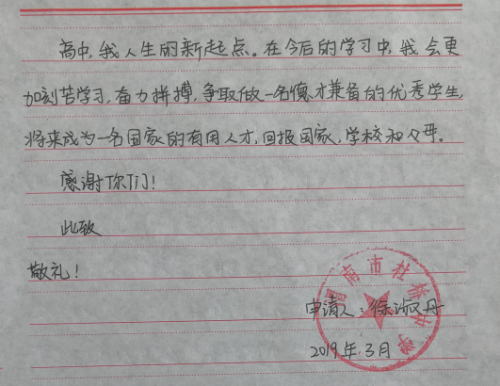 高中，我人生的新起点。在今后的学习中，我会更
加刻苦学习，奋力拼搏，争取做一名德才兼备的优秀学生，
将来成为一名国家的有用人才，回报国家，学校和父母。
感谢你们！
此致
敬礼！
渭南市杜桥中学
申请人：徐淑丹
2019年3月